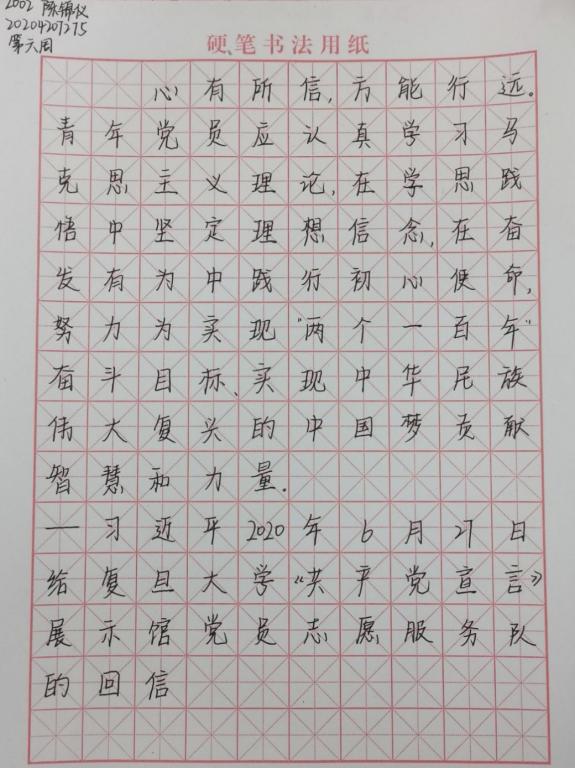 2002 陈锦仪
20204207275
第六周
硬笔书法用纸
心有所信,方能行远。
青年党员应认真学习马
克思主义理论,在学思践
悟中坚定理想信念,在奋
发有为中践行初心使命,
努力为实现"两个一百年"
奋斗目标、实现中华民族
伟大复兴的中国梦贡献
智慧和力量.
—习近平2020年6月27日
给复旦大学《共产党宣言》
展示馆党员志愿服务队
的回信